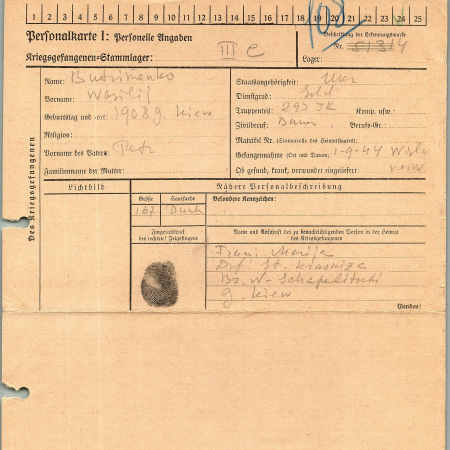 1 2 3 4 5 6 7 8 9 10 11 12 13 14 15 16 17 18 19 20 21 22 23 24 25
Personalkarte I: Personelle Angaben
Kriegsgefangenen-Stammlager: III C
Beschriftung der Erkennungsmarke
Nr. 51314
Lager:
Des Kriegsgefangenen
Name: Butrimenko
Vorname: Wasilij
Geburtstag und -ort: 1908 g. Kiew
Religion:
Vorname des Vaters: Petr
Familienname der Mutter:
Staatsangehörigkeit: Ukr
Dienstgrad: Sold
Truppenteil: 293 IR Komp. usw.:
Zivilberuf: Bauer Berufs-Gr.:
Matrikel Nr. (Stammrolle des Heimatstaates):
Gefangennahme (Ort und Datum): 1-9-44
Ob gesund, krank, verwundet eingeliefert:
Lichtbild
Nähere Personalbeschreibung
Größe Haarfarbe Besondere Kennzeichen:
167
Fingerabdruck
des rechten! Zeigefingers
Name und Anschrift der zu benachrichtigenden Person in der Heimat
des Kriegsgefangenen
Frau: Marija
g. Kiew
Wenden!